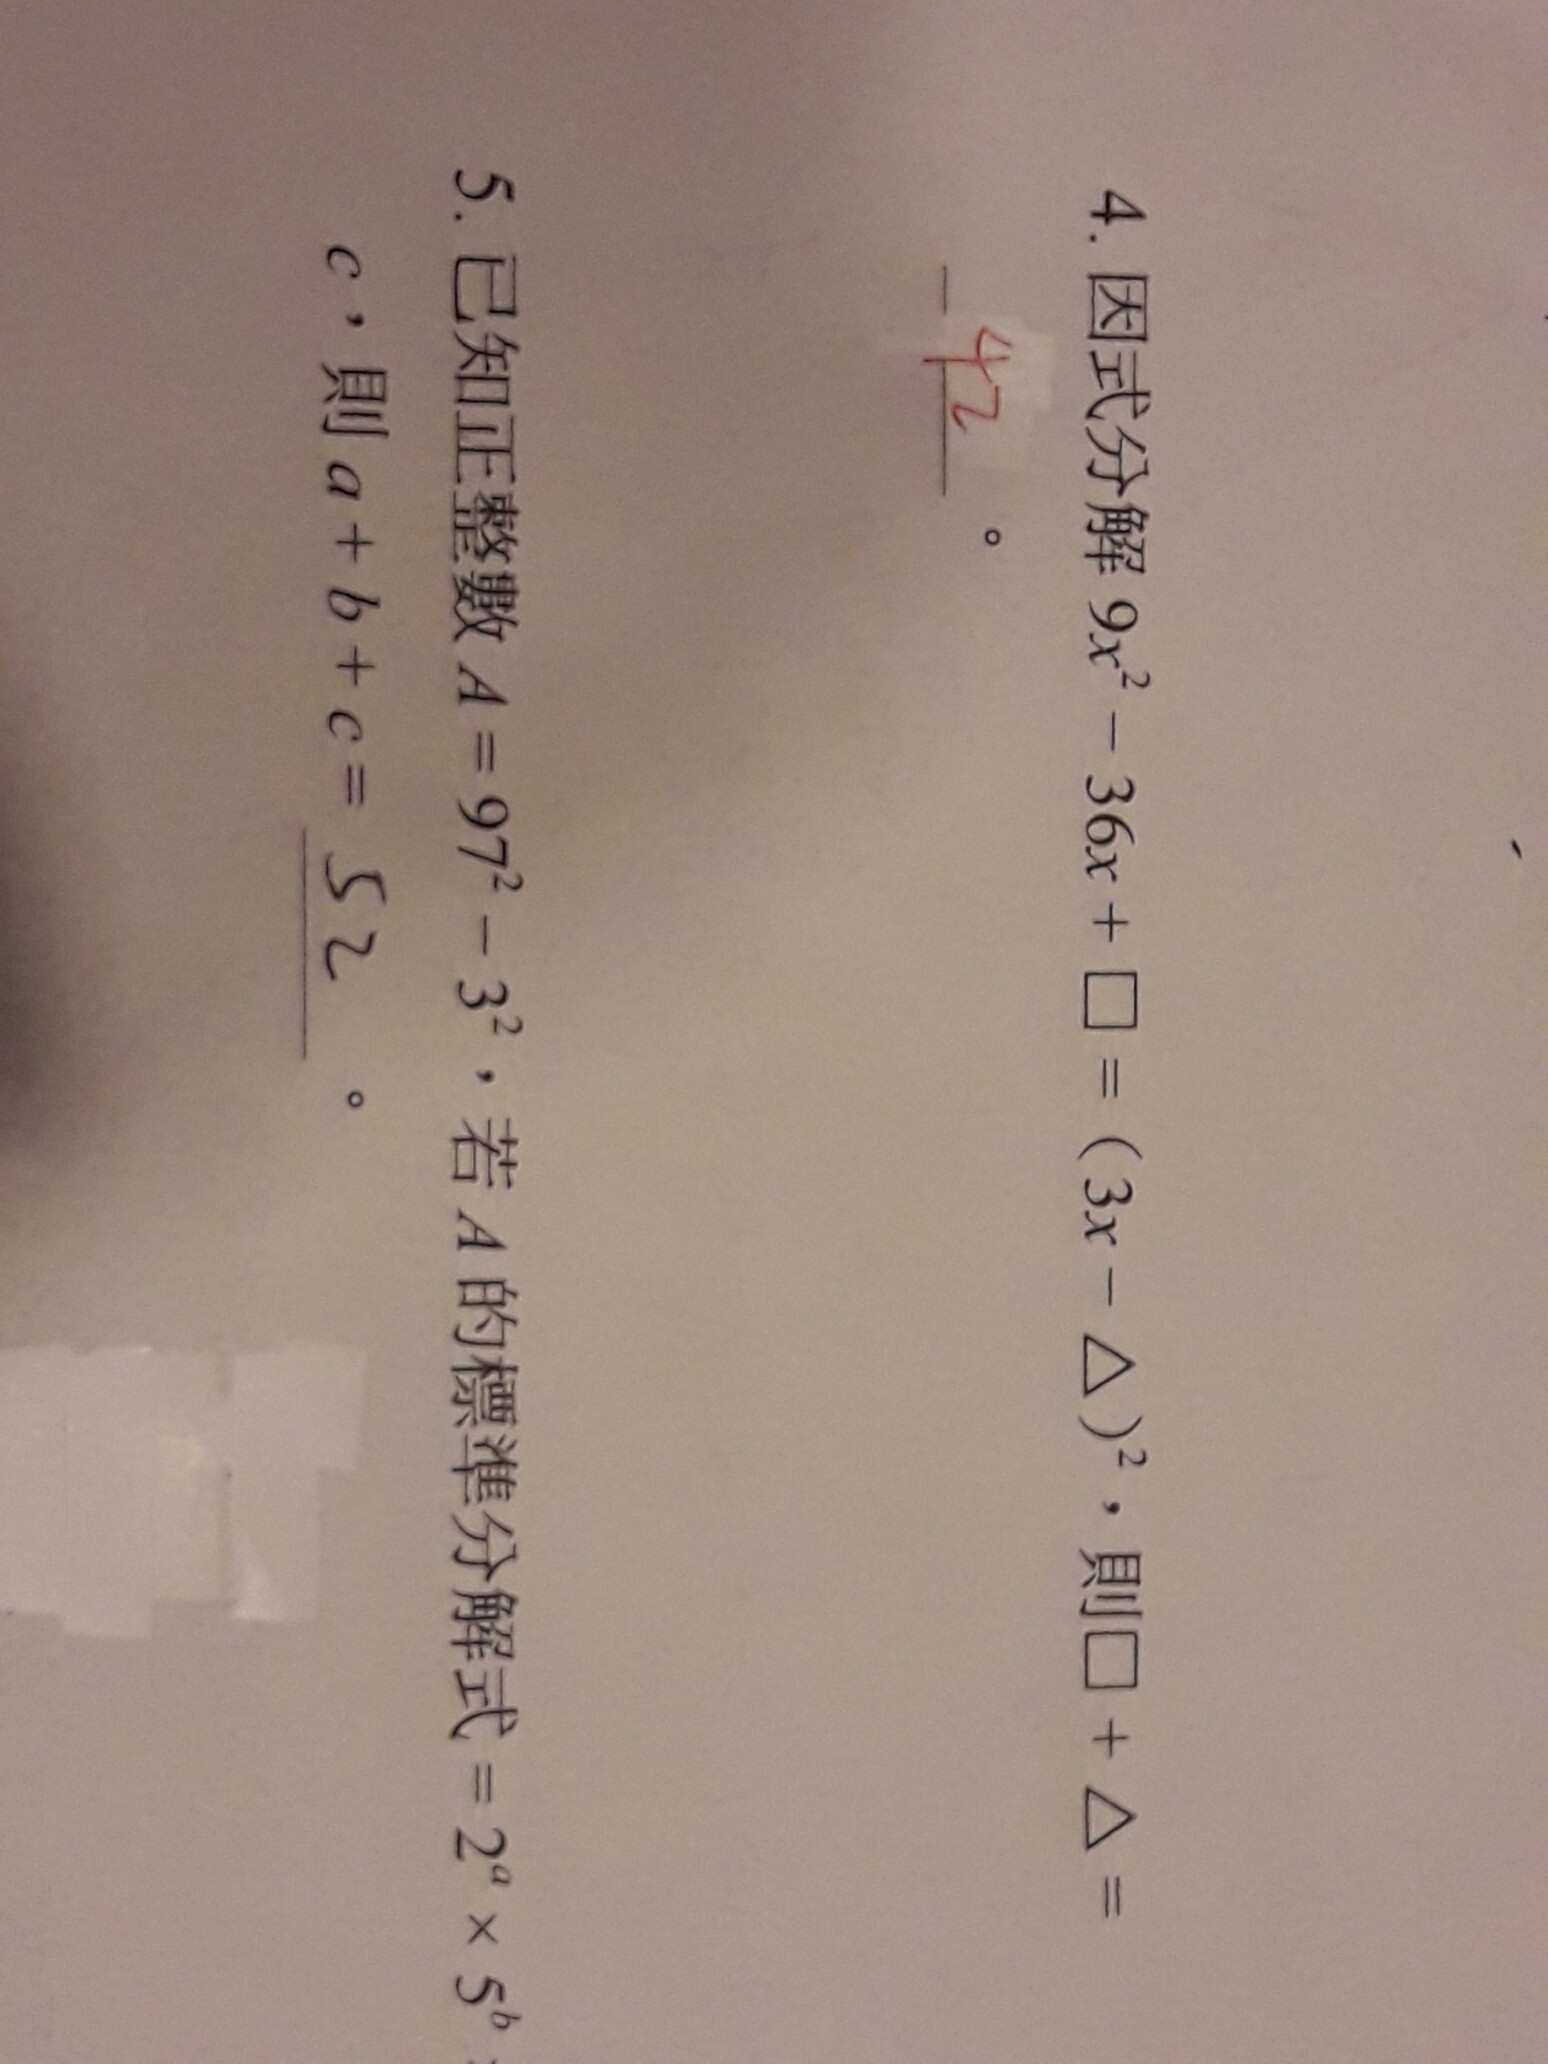 4. 因式分解 9x² − 36x + □ = (3x − △)²，則□ + △ =
42 。
5. 已知正整數 A = 97² − 3²，若 A 的標準分解式 = 2ᵃ × 5ᵇ
c，則 a + b + c = 52 。